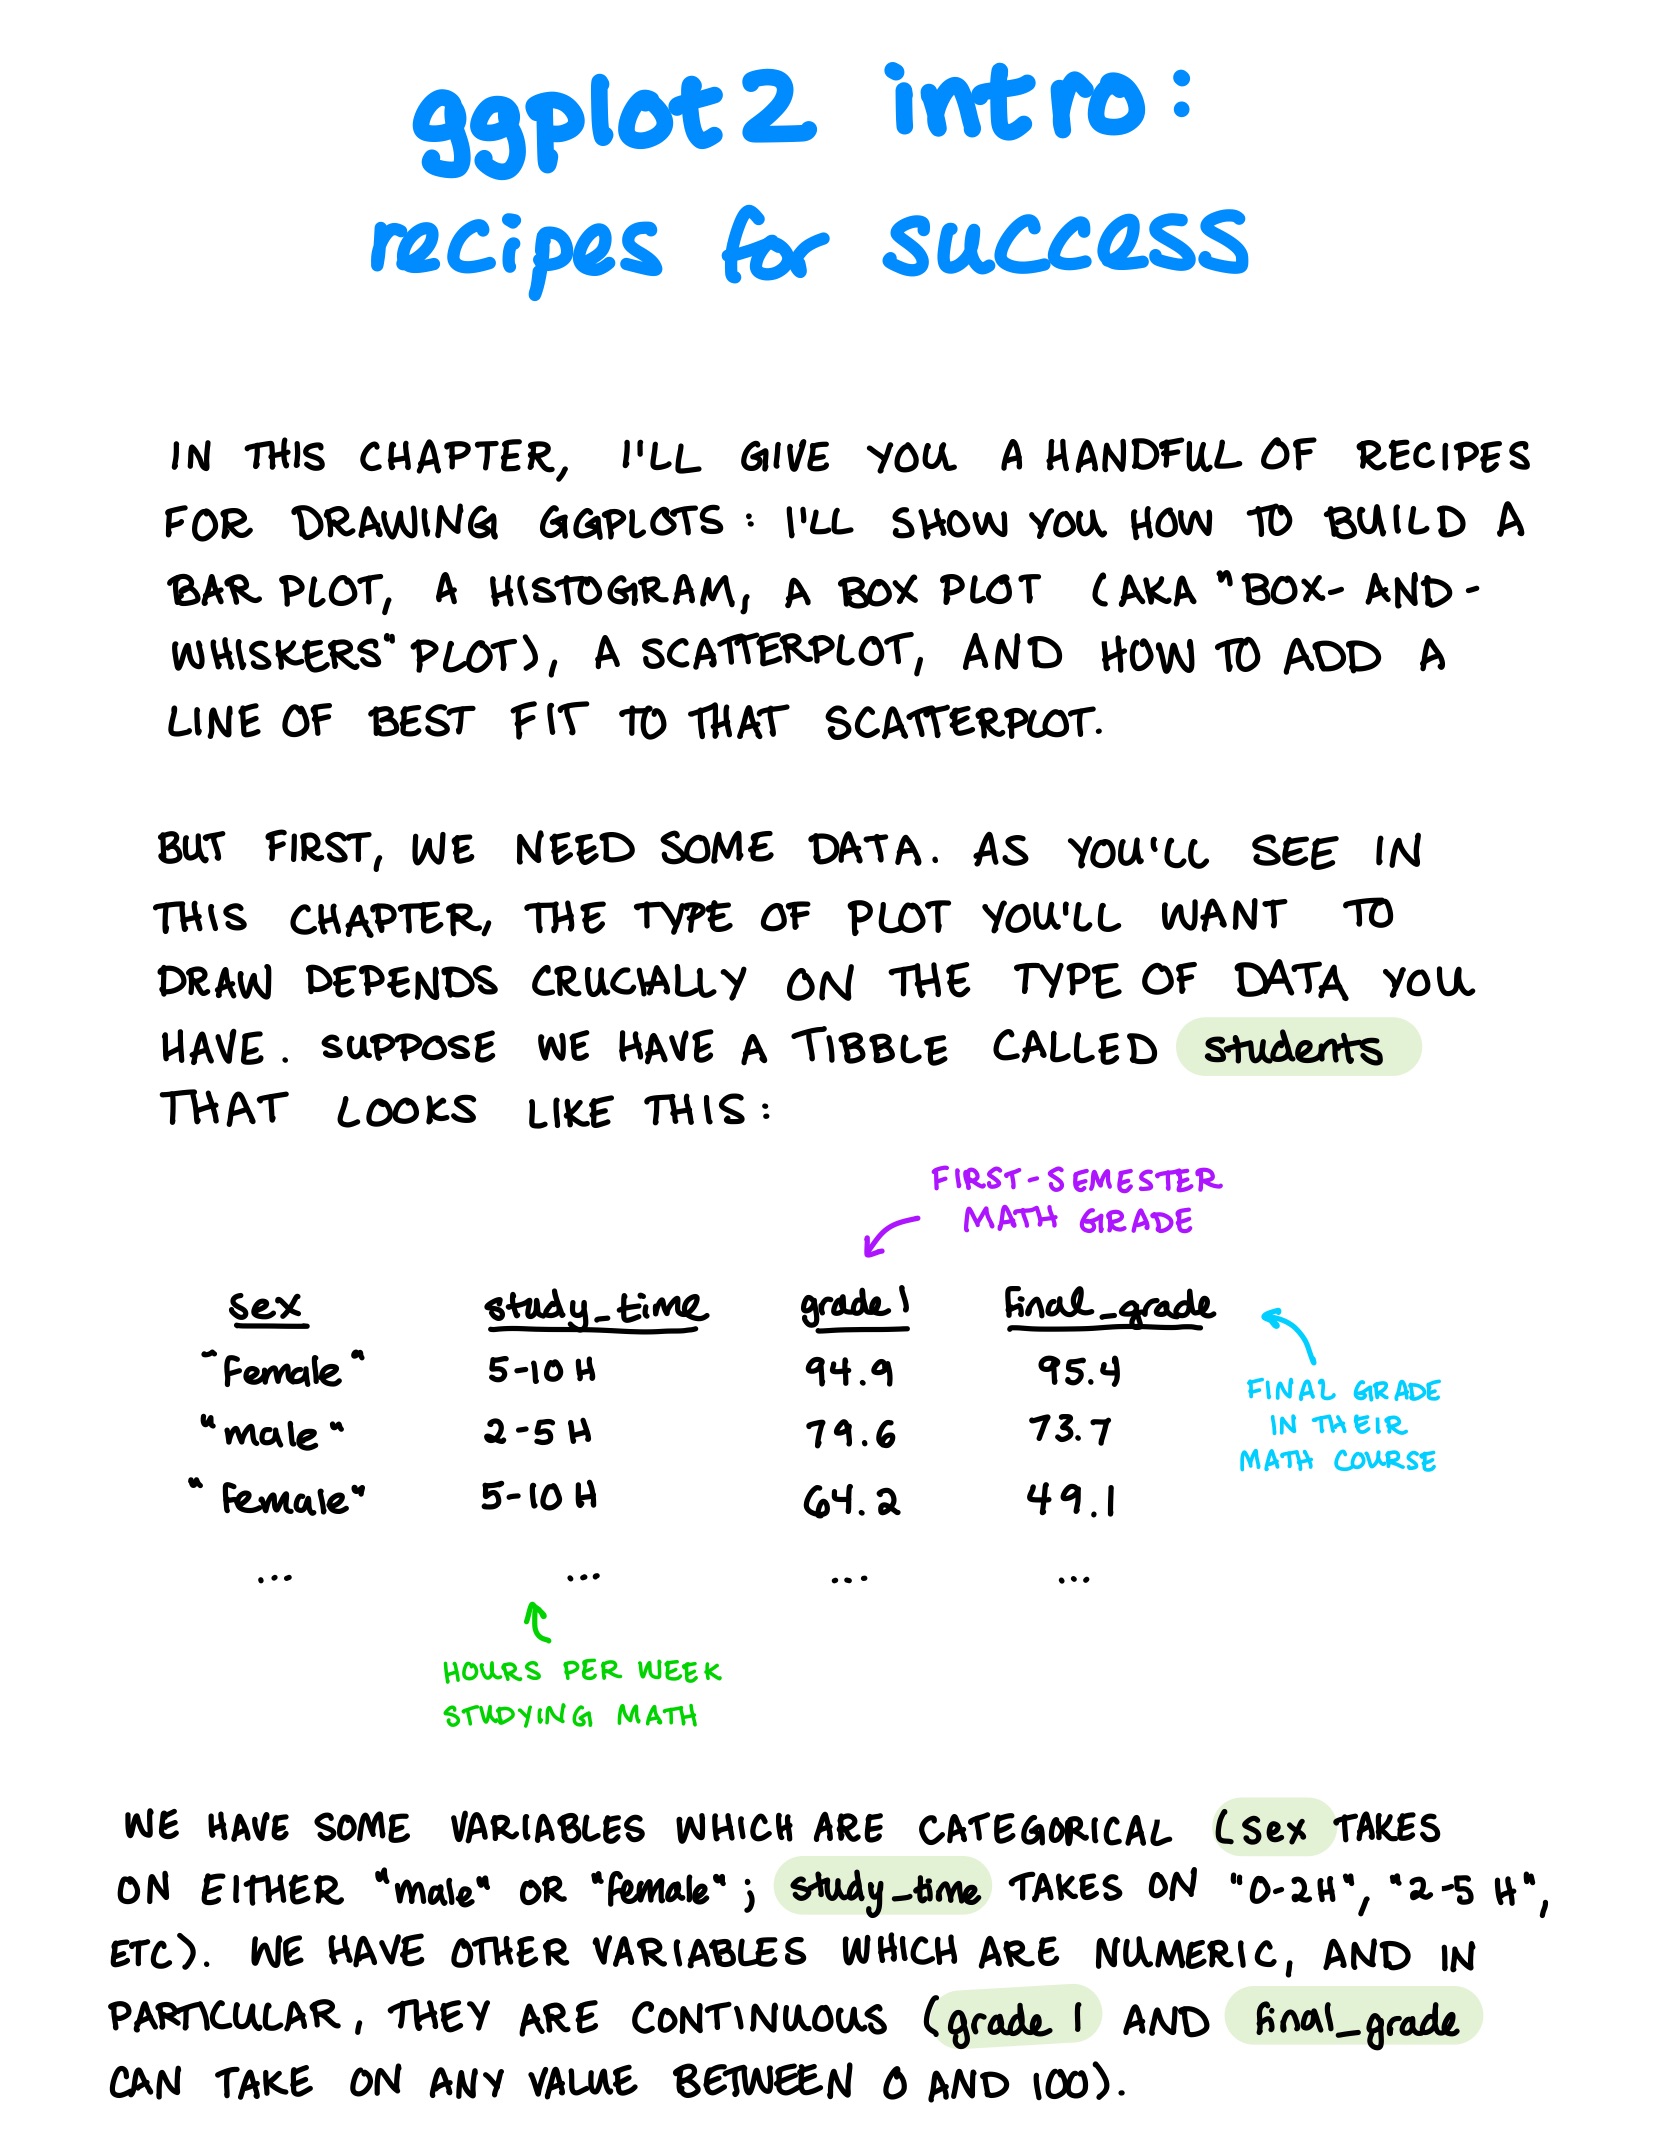 ggplot2 intro:
recipes for success
IN THIS CHAPTER, I'LL GIVE YOU A HANDFUL OF RECIPES
FOR DRAWING GGPLOTS: I'LL SHOW YOU HOW TO BUILD A
BAR PLOT, A HISTOGRAM, A BOX PLOT (AKA "BOX-AND-
WHISKERS" PLOT), A SCATTERPLOT, AND HOW TO ADD A
LINE OF BEST FIT TO THAT SCATTERPLOT.
BUT FIRST, WE NEED SOME DATA. AS YOU'LL SEE IN
THIS CHAPTER, THE TYPE OF PLOT YOU'LL WANT TO
DRAW DEPENDS CRUCIALLY ON THE TYPE OF DATA YOU
HAVE. SUPPOSE WE HAVE A TIBBLE CALLED students
THAT LOOKS LIKE THIS:
FIRST-SEMESTER
MATH GRADE
sex study_time grade1 final_grade
"female" 5-10 H 94.9 95.4
"male" 2-5 H 79.6 73.7
"female" 5-10 H 64.2 49.1
... ... ... ...
FINAL GRADE
IN THEIR
MATH COURSE
HOURS PER WEEK
STUDYING MATH
WE HAVE SOME VARIABLES WHICH ARE CATEGORICAL (sex TAKES
ON EITHER "male" OR "female"; study_time TAKES ON "0-2H", "2-5 H",
ETC). WE HAVE OTHER VARIABLES WHICH ARE NUMERIC, AND IN
PARTICULAR, THEY ARE CONTINUOUS (grade1 AND final_grade
CAN TAKE ON ANY VALUE BETWEEN 0 AND 100).